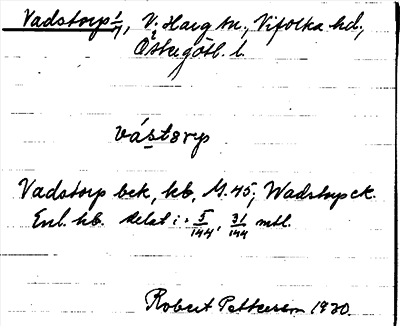 Vadstorp 1/1, V. Harg sn, Vifolka hd,
Östergötl. l.
västₔrp
Vadstorp bek, kb, M. 45; Wadstorp ek.
Enl. kb. delat i: 5/144, 31/144 mtl.
Robert Pettersson 1930.